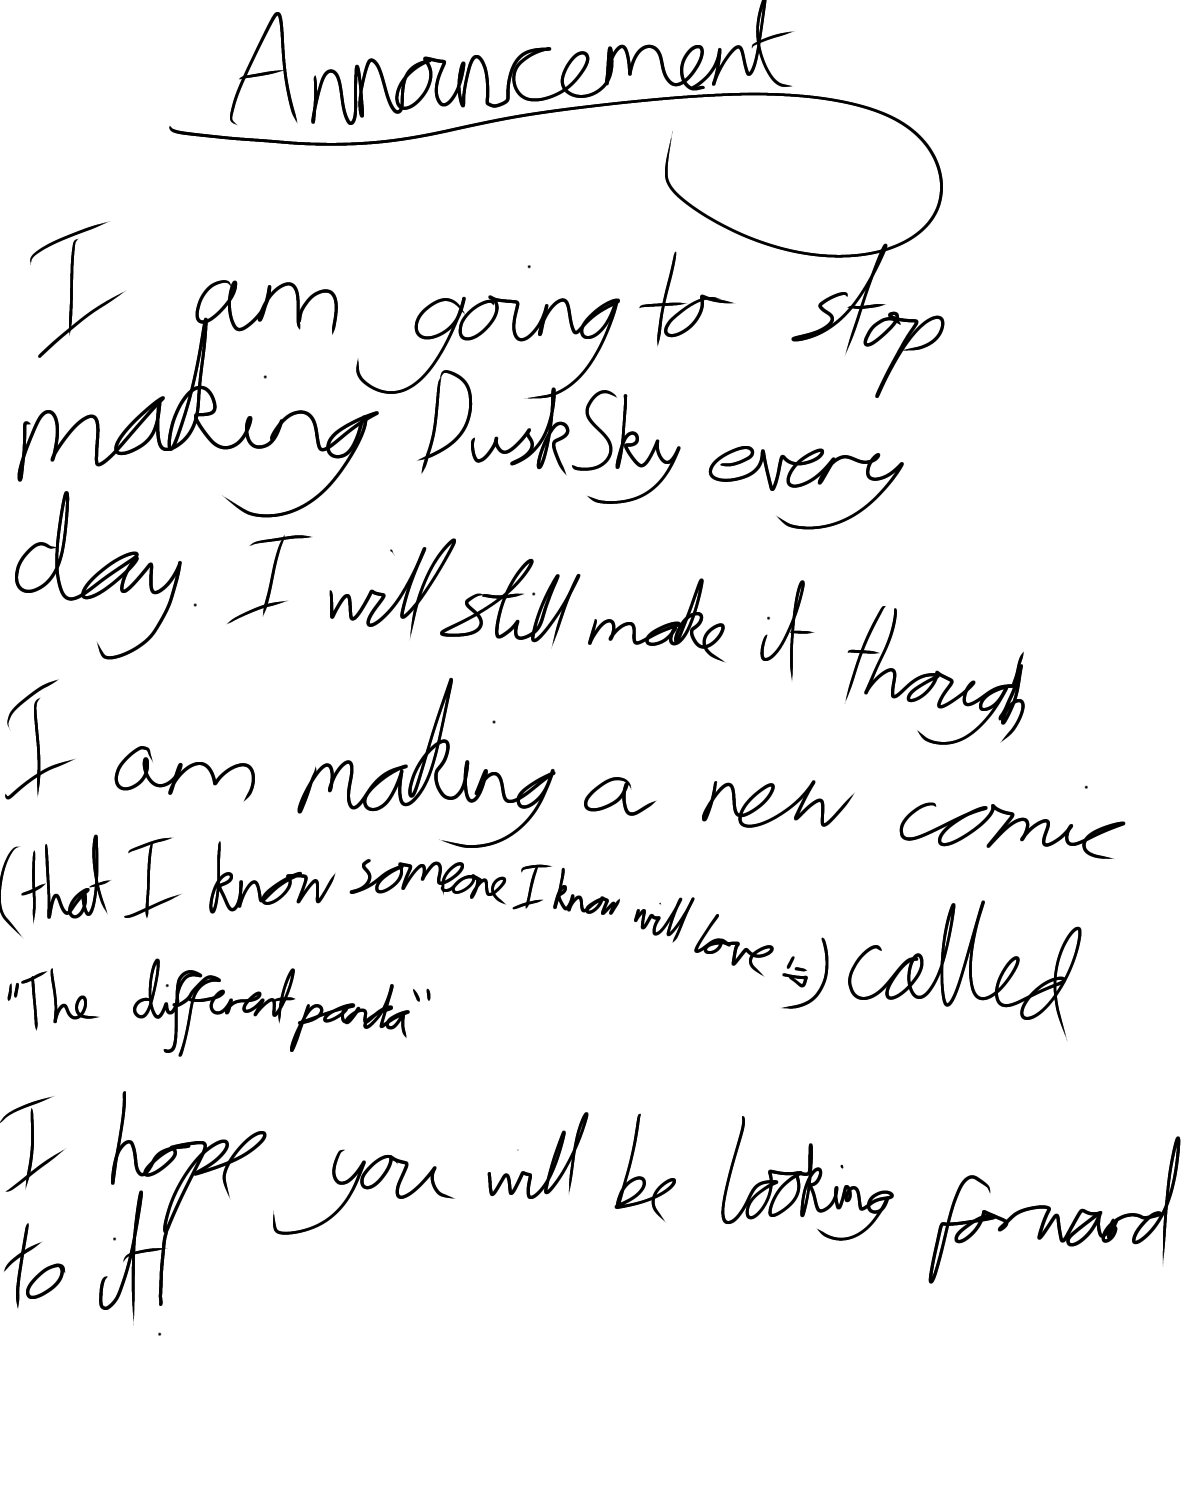 Announcement
I am going to stop
making DuskSky every
day. I will still make it though
I am making a new comic
(that I know someone I know will love =)) called
"The different panda"
I hope you will be looking forward
to it!